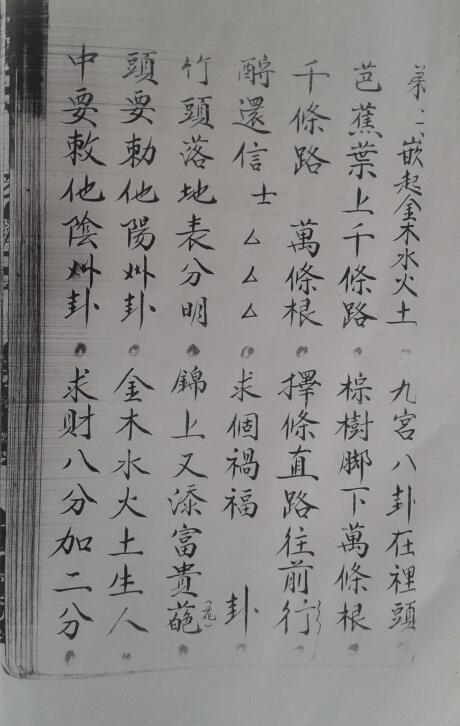 嵌起金木水火土 九宮八卦在裡頭
芭蕉葉上千條路 棕樹脚下萬條根
千條路 萬條根 擇條直路往前行
酧還信士 △△△ 求個禍福 卦
竹頭落地表分明 錦上又添富貴葩(花)
頭要勅他陽州卦 金木水火土生人
中要敕他陰州卦 求财八分加二分